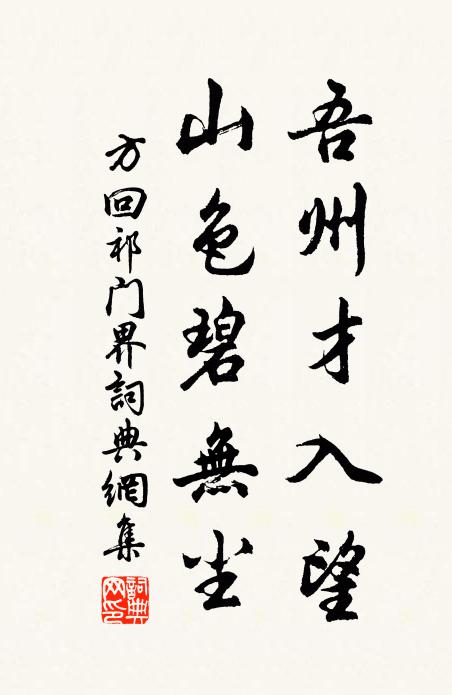 吾州才入望
山色碧無尘
方回祁门界詞典網集
詞典网印